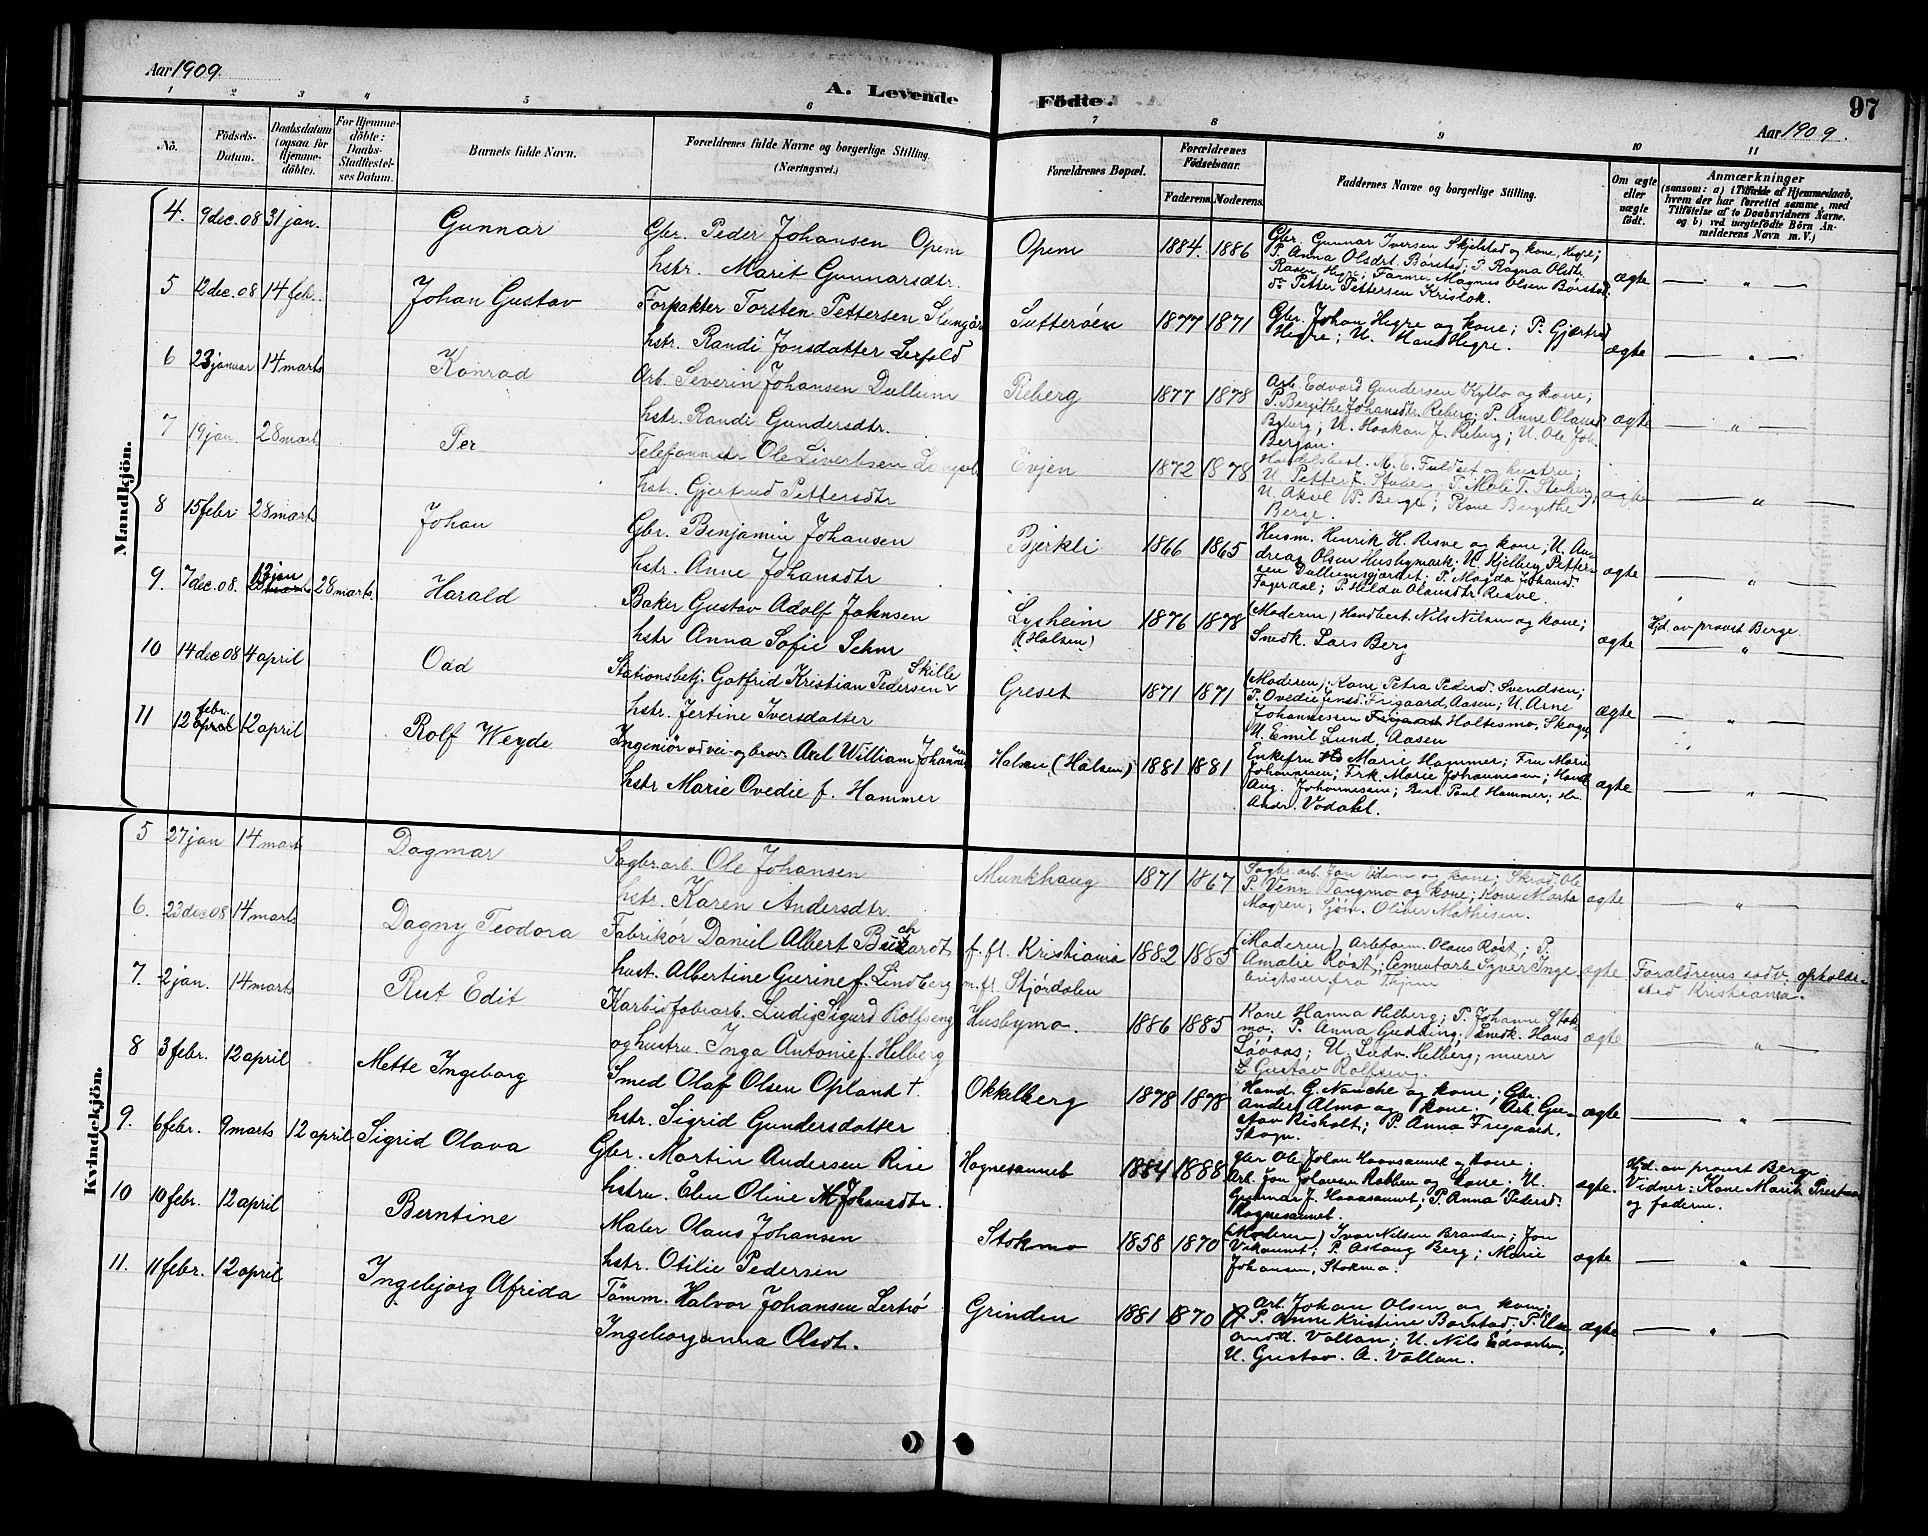 Aar 1909.
A. Levende Födte.
97
Aar 1909.
1 2 3 4 5 6 7 8 9 10 11
No.
Födsels-Datum.
Daabsdatum (ogsaa for Hjemmedöbte).
For Hjemmedöbte: Daabs-Stadfæstelses Datum.
Barnets fulde Navn.
Forældrenes fulde Navne og borgerlige Stilling. (Næringsvei.)
Forældrenes Bopæl.
Forældrenes Födselsaar.
Faderens. Moderens.
Faddernes Navne og borgerlige Stilling.
Om ægte eller uægte födt.
Anmærkninger
(saasom: a) i Tilfælde af Hjemmedaab, hvem der har forrettet samme, med Tilföielse af to Daabsvidners Navne, og b) ved uægtefödte Börn Anmelderens Navn m. V.)
Mandkjön.
4. 9 dec. 08 31 jan. Gunnar Gbr. Peder Johansen Opem Opem 1884. 1886 Gbr. Gunnar Iversen Skjelstad og kone, Hegre;
hstr. Marit Gunnarsdtr. P. Anna Olsdrt. Börstad; P. Ragna Olsdtr.
Hegre; Farmer Magnus Olsen Börstad; ægte — " —
do Petter Pettersen Kristok.
5 12 dec. 08 14 feb. Johan Gustav Forpakter Torsten Pettersen Slungård Sutteröen 1877 1871 Gbr. Johan Hegre og kone; P. Gjertrud
hstr. Randi Jonsdatter Lerfald Hegre; U. Hans Hegre. ægte — " —
6 23 januar 14 marts Konrad Arb. Severin Johansen Dullum Reberg 1877 1878 Arb. Edvard Gundersen Kyllo og kone;
hstr. Randi Gundersdtr. P. Bergithe Johansdtr. Reberg; P. Anne Olausd. ægte — " —
Byberg; U. Haakon J. Reberg; U. Ole Joh.
Bergan.
7 19 jan. 28 marts Per Ole Sivertsen Evjen 1872 1878 Handelsbest. M. E. Fuldset og hustru;
hstr. Gjertrud Pettersdtr U. Petter J. Stuberg; P. Mali T. Stuberg; ægte — " —
U. Aksel P. Berge; Kone Bergithe
Berge.
8 15 febr. 28 marts Johan Gbr. Benjamin Johansen Bjerkli 1866 1865 Husm. Henrik H. Resve og kone; U. An-
hstr. Anne Johansdtr dreas Olsen Husbymark; U. Kjelberg Petter- ægte — " —
sen Dullumsgjærdet; P. Magda Johansd.
Fagerdal; P. Hilda Olausdtr Resve.
9. 7 dec. 08. 13 jan 28 mark. Harald Baker Gustav Adolf Johnsen Lysheim (Halsen) 1876 1878 (Moderen) Handbest. Nils Nilsen og kone;
hstr Anna Sofie Sehm Snedk. Lars Berg ægte Hjd. av provst Berge — " —
10 14 dec 08 4 april Odd Stationsbetj. Gotfrid Kristian Pedersen Skille Greset 1871 1871 (Moderen); Kone Petra Pedersd. Svendsen;
hstr. Jertine Iversdatter P. Ovedie Jensd. Frigaard, Aasen; U. Arne ægte — " —
Johannessen Holtesmo, Skogn;
U. Emil Lund, Aasen
11 12 febr. 12 april Rolf Weyde Ingeniör ved vei- og brov. Axel William Johannessen Halsen (Halsen) 1881 1881 Enkefru Marie Hammer; Fru Marie
hstr Marie Ovedie f. Hammer Johannessen; Frk. Marie Johannesen; Handl. ægte — " —
Aug. Johannessen; Best. Paul Hammer; Hr.
Andr. Vodahl.
Kvindekjön.
5 27 jan 14 marts Dagmar Sagbr.arb. Ole Johansen Munkhaug 1871 1867 Sagbr. arb. Jon Edem og kone; Skred. Ole
hstr. Karen Andersdtr. P. Venn Tangmo og kone; Kone Marta ægte — " —
Mogren; Sjöm. Oliver Mathisen.
6. 23 dec 08 14 marts Dagny Teodora Fabrikör Daniel Albert Buchardt f. fl. Kristiania 1882 1885 (Moderen) Arbform. Olaus Röst; P.
hust. Albertine Gurine f. Lindberg m. fl. Stjördalen Amalie Röst; Cementarb Syver Inge- ægte Foreldrenes sedv. opholds-
brigtsen fra sted Kristiania.
7. 2 jan. 14 marts Rut Edit Karbidfabr.arb. Ludvig Sigurd Rolfseng Husbymo. 1886 1885 Kone Hanna Helberg; P. Johanne Stok-
og hustru. Inga Antonie f. Helberg mo; P. Anna Gudding; Snedk. Hans ægte — " —
Laaaas; U. Ludv. Helberg; murer
L. Gustav Rolfseng.
8 3 febr. 12 april Mette Ingeborg Smed Olaf Olsen Opland † Okkelberg 1878 1878 Hand. G. Nauche og kone; Gbr.
hstr. Sigrid Gundersdatter Anders Almo og kone. Arb. Gu- ægte — " —
stav Risholt; P. Anna Frigaard,
Skogn.
9. 6 febr. 9 marts 12 april Sigrid Olava Gbr. Martin Andersen Rise Hognesaunet 1884 1888 Gbr Ole Johan Haavsaunet og kone; Hjd. av provst Berge.
hstru. Elen Oline Johansdtr. Arb. Jon Johansen Rabben og kone; U. ægte. Vidner: Kone Marit Prestmo
Gunnar J. Haavsaunet; P. Anna Pedersd. og faderen.
Hognesaunet.
10 10 febr. 12 april Berntine Maler Olaus Johansen Stokmo 1858 1870 (Moderen) Ivar Nilsen Branden; Jon
hstr. Otilie Pedersen Vikaunet; P. Aslaug Berg; Marie ægte — " —
Johansen, Stokmo.
11. 11 febr. 12 april Ingebjorg Alfrida Tömm. Halvor Johansen Lertrö Grinden 1881 1870 Arb. Johan Olsen og kone;
Ingeborganna Olsdt. P. Anne Kristine Borstad; P. Else ægte — " —
and. Vollan; U. Nils Edvardsen,
U. Gustav A. Vollan.